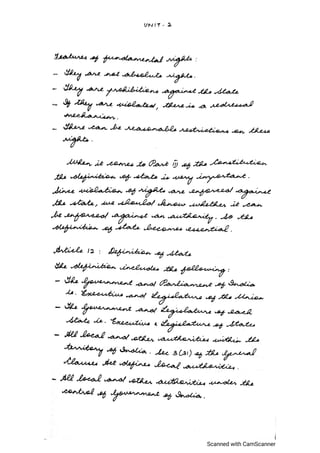 UNIT - 2
Features of fundamental rights :
- They are not absolute rights.
- They are prohibitions against the State
- If they are violated, there is a redressal
mechanism.
- There can be reasonable restrictions on these
rights.
When it comes to Part III of the Constitution
the definition of state is very important.
Since violation of rights are enforced against
the state, we should know whether it can
be enforced against an authority. So the
definition of state becomes essential.
Article 12 : Definition of State
The definition includes the following :
- The Government and Parliament of India
ie. Executive and Legislature of the Union
- The Government and Legislature of each
State ie. Executive & Legislature of States
- All local and other authorities within the
territory of India. Sec 3(31) of the General
Clauses Act defines local authorities.
- All local and other authorities under the
control of Government of India.
Scanned with CamScanner